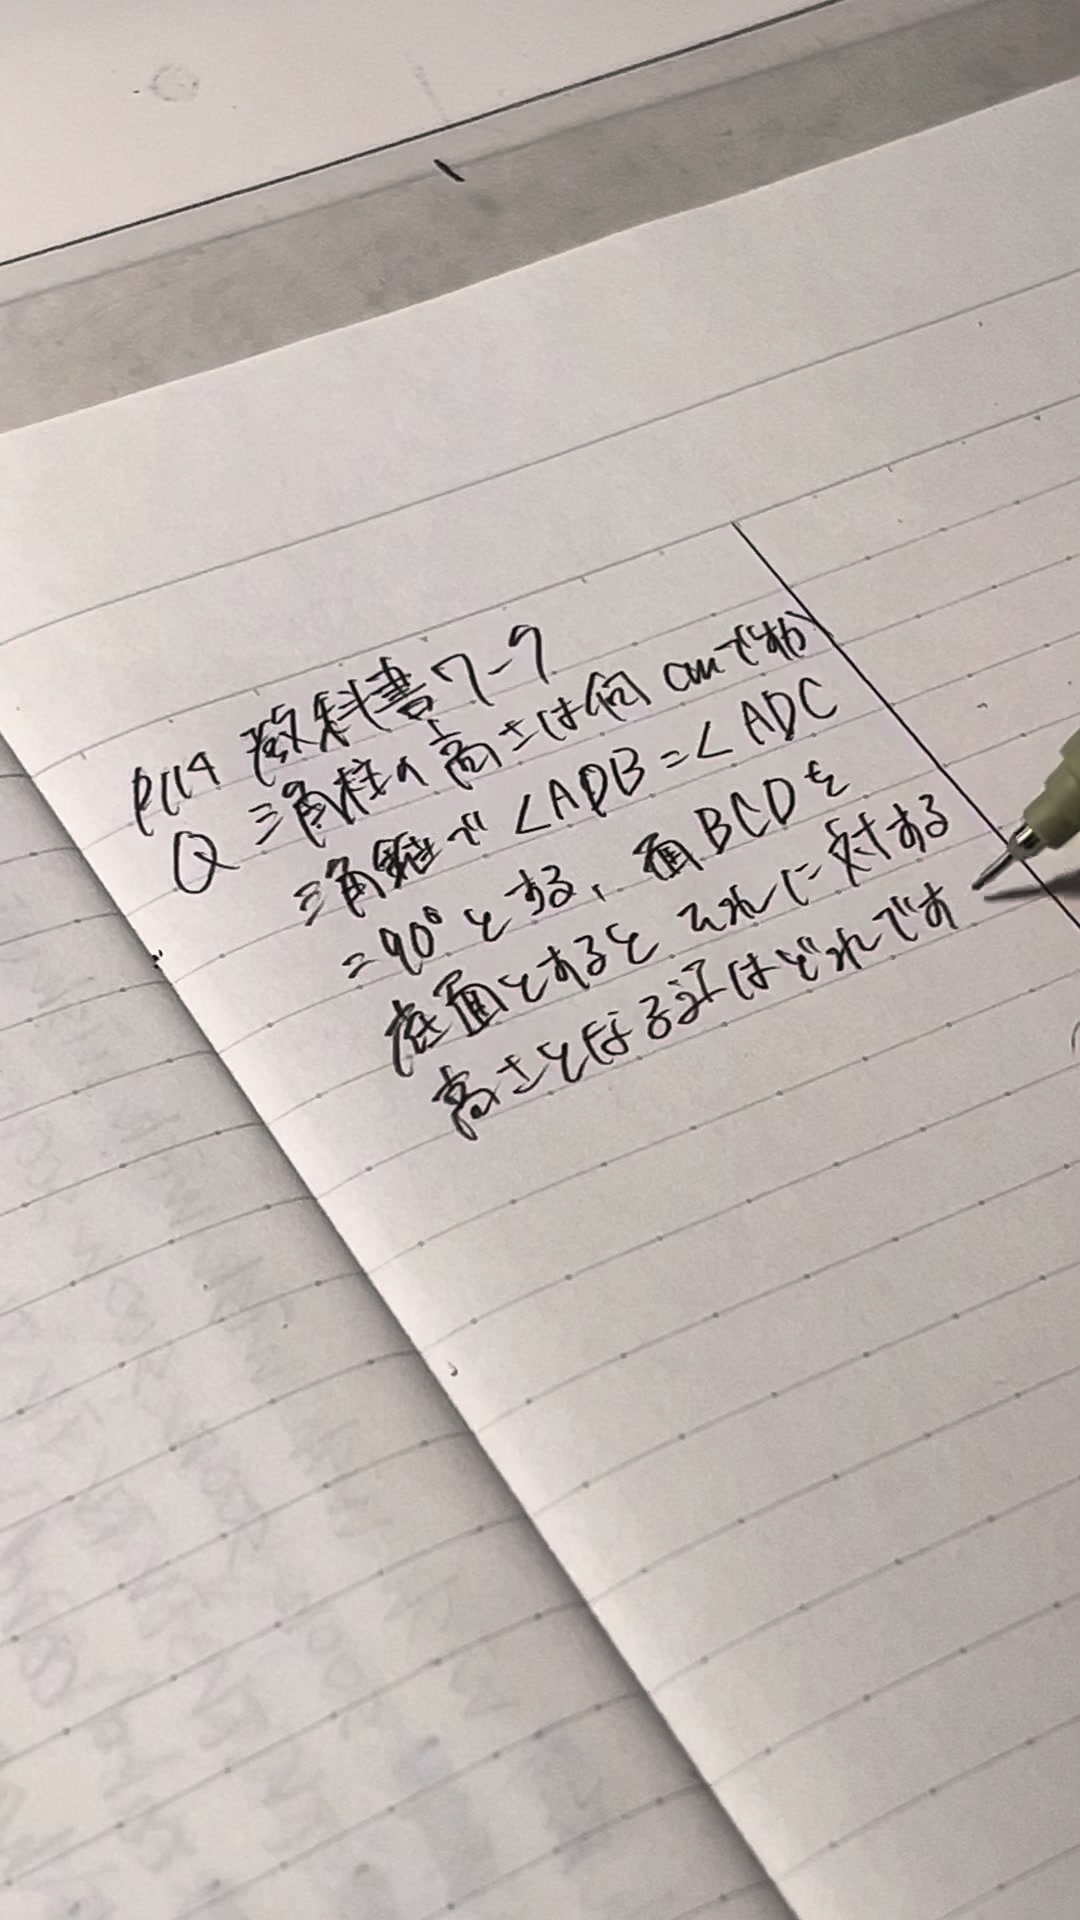 P114 教科書7-9
Q 三角柱の高さは何cmですか
三角錐で∠ADB=∠ADC
=90°とする、面BCDを
底面とするとそれに対する
高さとなる辺はどれです